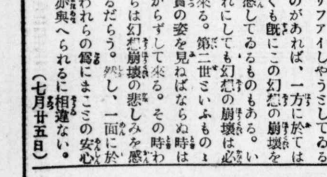 サファイしやうとしてゐる
のがあれば、一方に於ては
くも既にこの幻想の崩壊を
感してゐるものもある。い
れにしても幻想の崩壊は必
來る。第二世といふものょ
實の姿を見ねばならぬ時は
からずして來る。その時わ
らは幻想崩壊の悲しみを感
るだらう。然し、一面に於
われらの爲にまことの安心
亦與へられるに相違ない。
（七月廿五日）